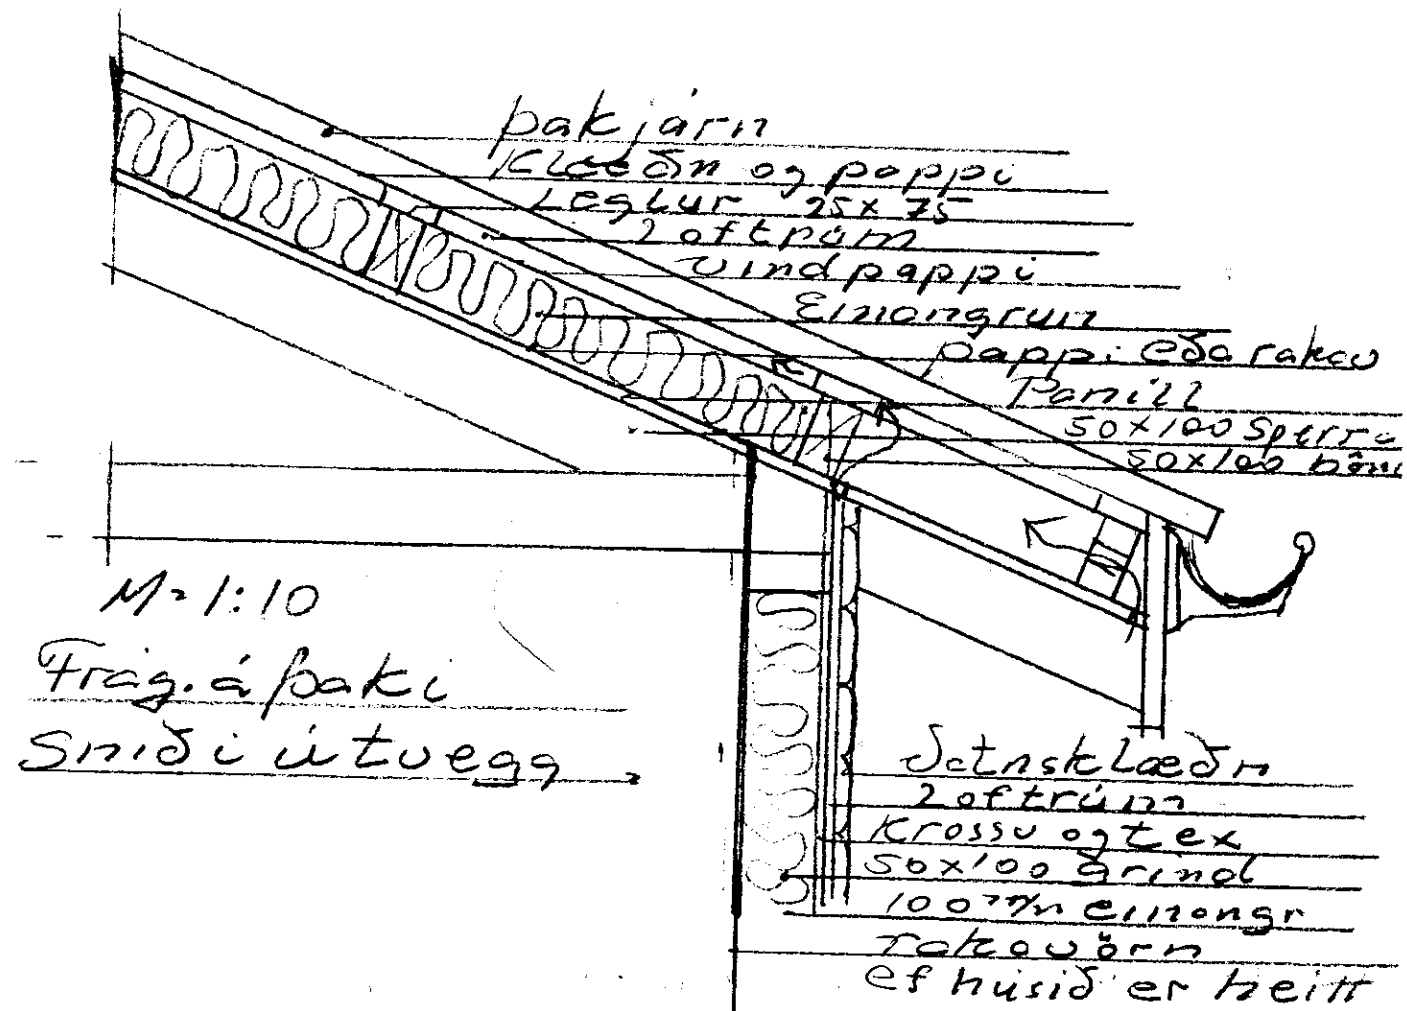 þakjárn
Klæðn og pappi
Leglur 25x75
Loftrúm
Vindpappi
Einangrun
pappi eða rakav
Panill
50x100 Sperra
50x100
M=1:10
Frág. á þaki
Snið í útvegg
Vatnsklæðn
Loftrúm
Krossv og tex
50x100 Grind
100 m/m einangr
rakavörn
ef húsið er heitt